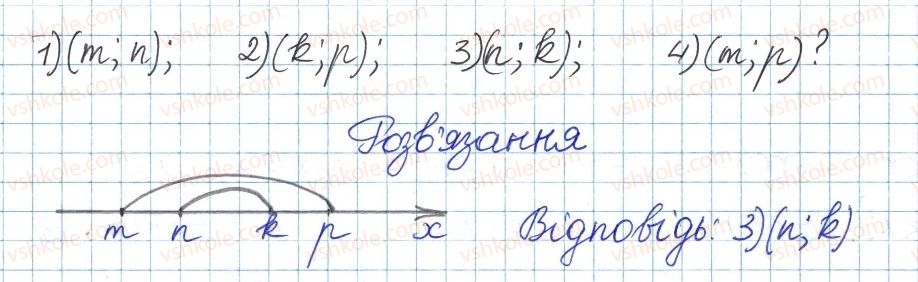 1) (m; n); 2) (k; p); 3) (n; k); 4) (m; p)?
Розв'язання
m n k p x
Відповідь: 3) (n; k)